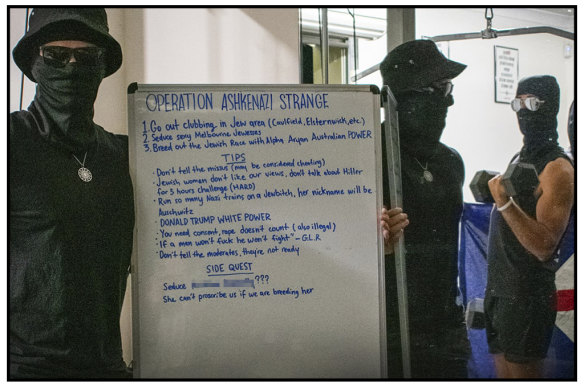 OPERATION ASHKENAZI STRANGE
1. Go out clubbing in Jew area (Caulfield, Elsternwick, etc.)
2. Seduce sexy Melbourne Jewesses
3. Breed out the Jewish Race with Alpha Aryan Australian POWER
TIPS
· Don't tell the missus (may be considered cheating)
· Jewish women don't like our views, don't talk about Hitler
for 5 hours challenge (HARD)
· Run so many Nazi trains on a Jewbitch, her nickname will be
Auschwitz
· DONALD TRUMP WHITE POWER
· You need consent, rape doesn't count (also illegal)
· "If a man won't fuck he won't fight" - G.L.R
· Don't tell the moderates, they're not ready
SIDE QUEST
Seduce ???
She can't proscribe us if we are breeding her